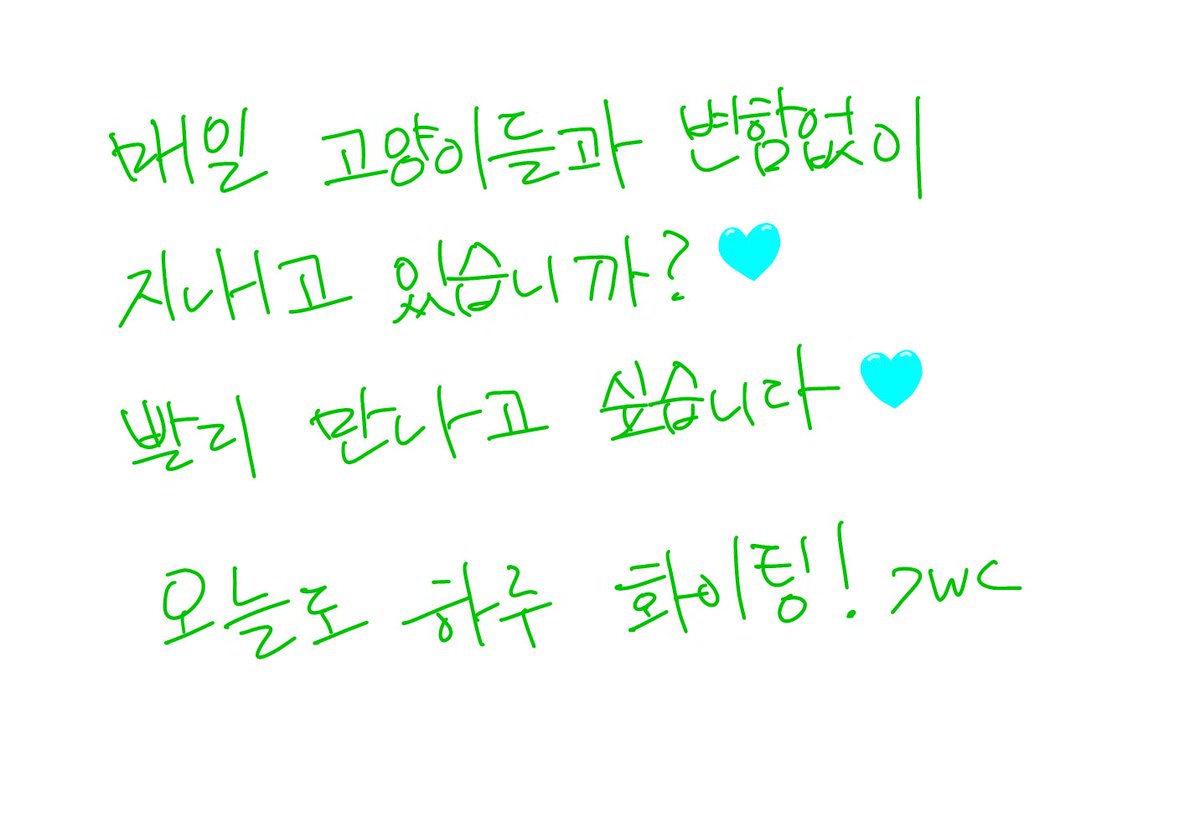 매일 고양이들과 변함없이
지내고 있습니까?🩵
빨리 만나고 싶습니다🩵
오늘도 하루 화이팅! >w<